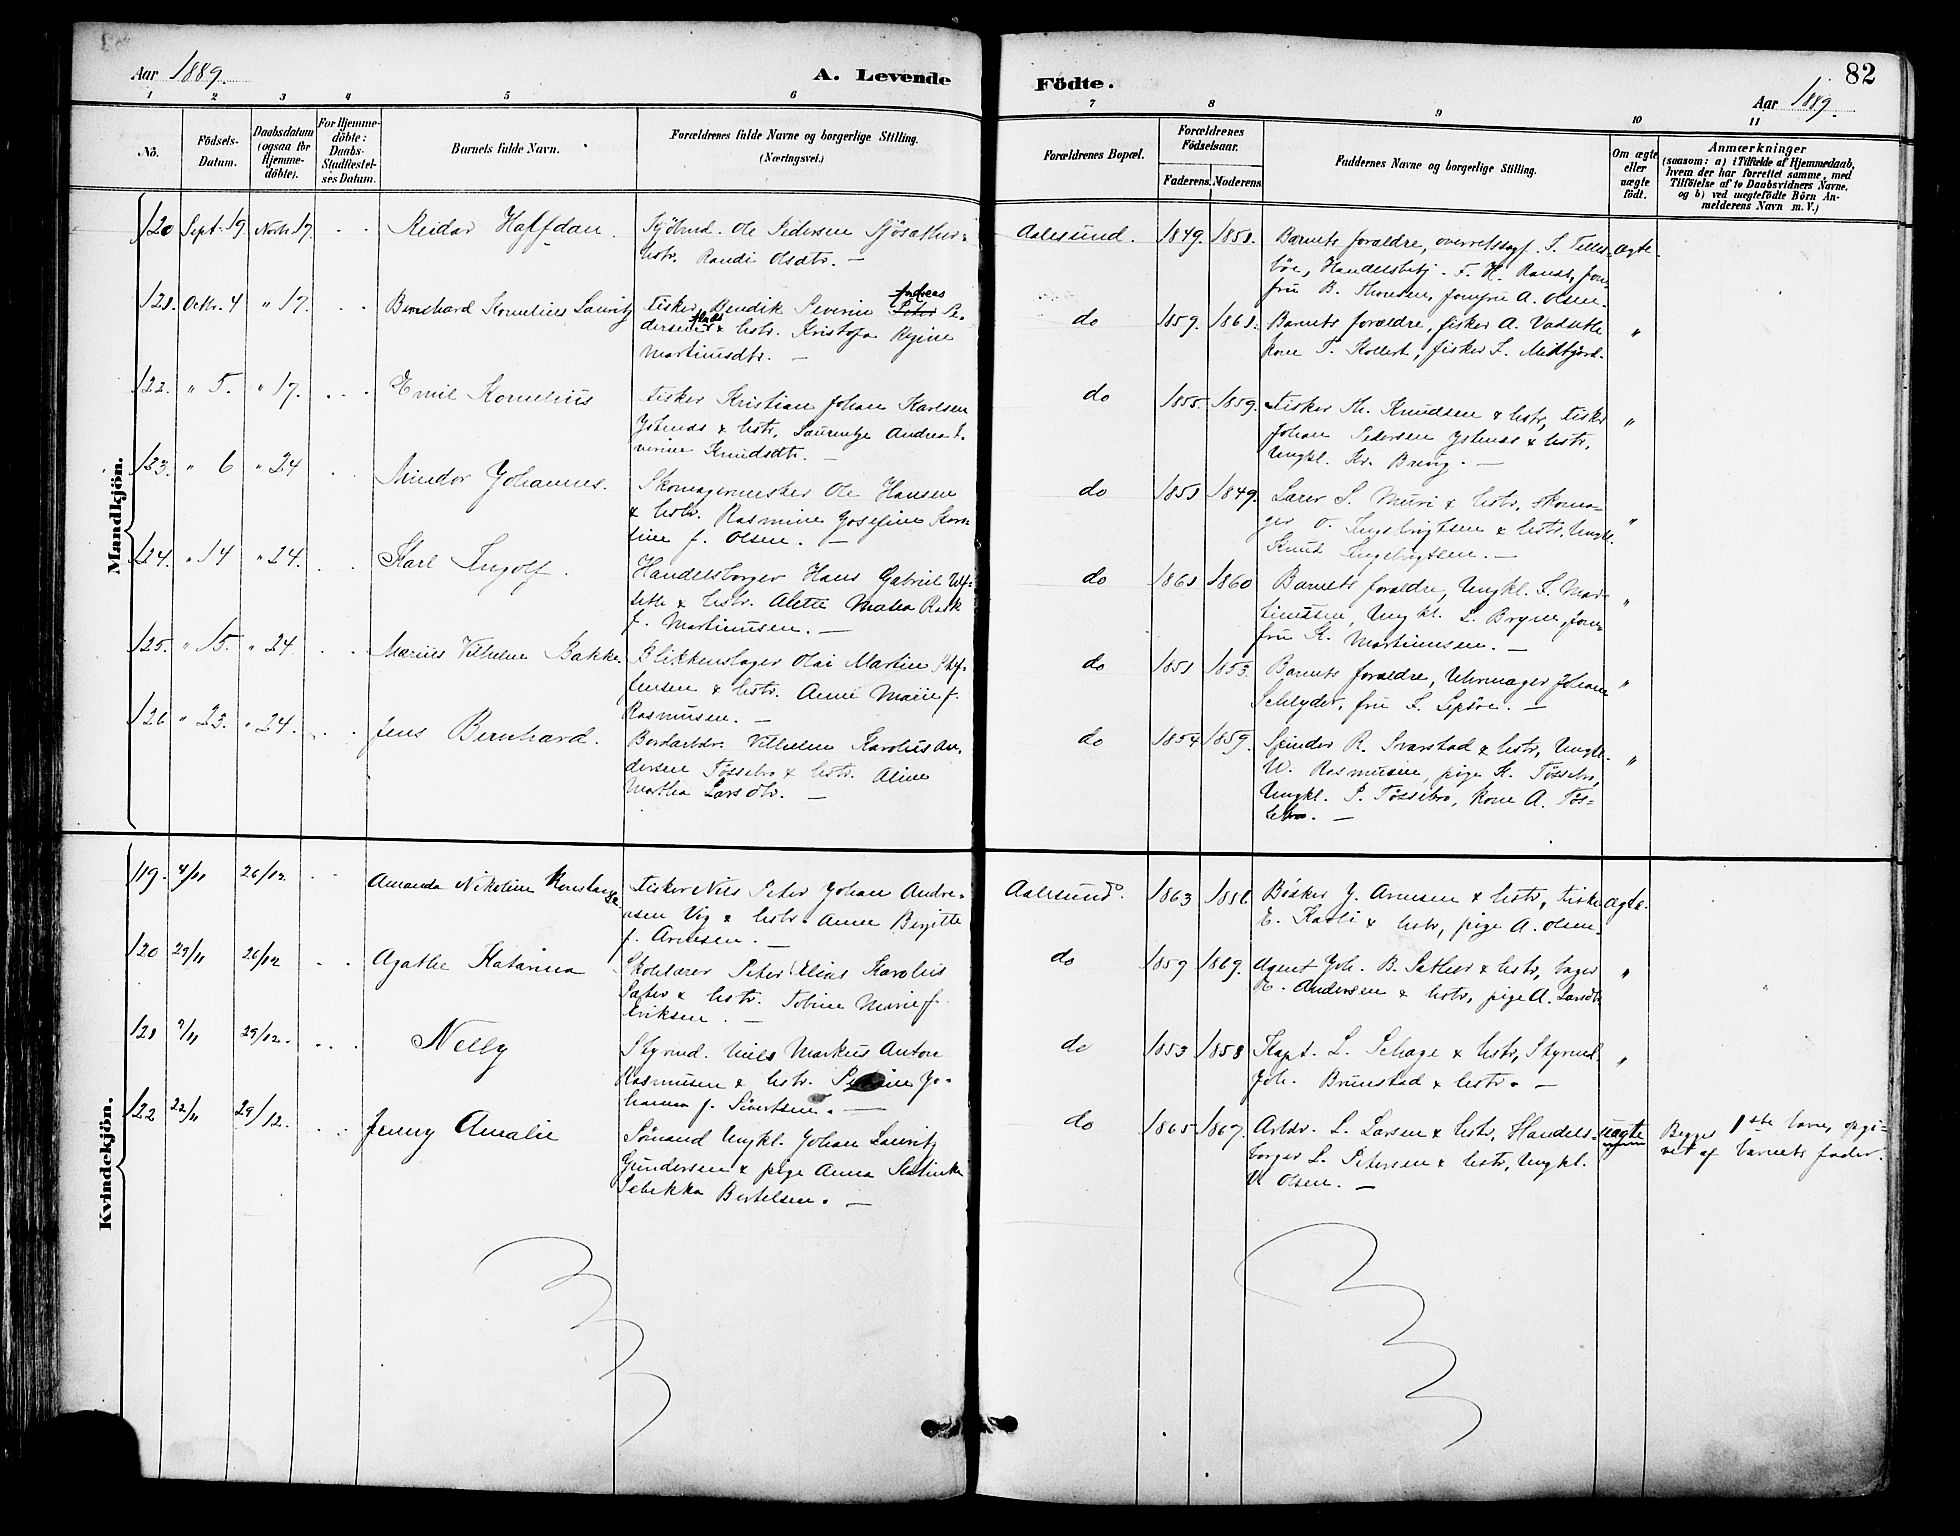 Aar 1889. A. Levende
Födte. 82
Aar 1889.
1 2 3 4 5 6
7 8 9 10 11
No.
Födsels-Datum.
Daabsdatum (ogsaa for Hjemme-döbte).
For Hjemme-döbte: Daabs-Stadfæstel-ses Datum.
Barnets fulde Navn.
Forældrenes fulde Navne og borgerlige Stilling.
(Næringsvei.)
Forældrenes Bopæl.
Forældrenes Födselsaar.
Faderens. Moderens.
Faddernes Navne og borgerlige Stilling.
Om ægte eller uægte födt.
Anmærkninger
(saasom: a) i Tilfælde af Hjemmedaab,
hvem der har forrettet samme, med
Tilföielse af to Daabsvidners Navne.
og b) ved uægtefödte Börn An-
melderens Navn m. V.)
Mandkjön.
120 Sept. 19. Novbr 17. Reidar Halfdan.
Ole Pedersen
hstr. Randi Olsdtr. —
Aalesund. 1849. 1851.
Barnets forældre, overretssagf. S.
Handelsbetj. F. H.
B. Thomsen, jomfru A. Olsen.
ægte.
121. Octbr. 4 " 17. Bernhard Kornelius Lauritz
Fisker Bendik Severin Andreas Peter Pe-
dersen & hstr. Kristofa Regine
Martinusdtr. —
do 1859. 1861.
Barnets forældre, fisker A.
kone T. fisker
"
122. " 5. " 17. Emil Kornelius
Fisker Kristian Johan Karlsen
Ystenæs & hstr. Andrea
Knudsdtr. —
do 1855. 1859.
Fisker Th. Knudsen & hstr, fisker
Johan Pedersen Ystenæs & hstr,
Ungkl. Kr. —
"
123. " 6 " 24 Mindor Johannes.
Skomagermester Ole Hansen
& hstr. Rasmine Josefine
f. Olsen. —
do 1851 1849.
Lærer S. Muri & hstr, skoma-
ger O. & hstr, Ungkl.
Knud Ingebrigtsen. —
"
124. " 14 " 24. Karl Ingolf.
Handelsborger Hans Gabriel Ulf-
& hstr. Alette
f. Martinusen. —
do 1861 1860
Barnets forældre, Ungkl. Mar-
tinusen, Ungkl. L. Bryne, jom-
fru K. Martinusen. —
"
125. " 15. " 24. Marius Vilhelm Bakke.
Blikkenslager Olai Martin
& hstr. Anne Marie f.
Rasmusen. —
do 1851 1853.
Barnets forældre, Uhrmager Johan
Schlyder, fru —
"
126 " 23. " 24. Jens Bernhard.
Bordarbdr. Vilhelm Karolius An-
dersen Tøssebro & hstr. Aline
Mathea Larsdtr. —
do 1854 1859.
R. Svarstad & hstr, Ungkl.
W. Rasmusen, pige K. Tøssebro,
Ungkl. P. Tøssebro, kone A. Tøs-
sebro. —
"
Kvindekjön.
119. 4/11 26/12 Amanda Nikoline
Fisker Nils Peter Johan Andre-
asen Vig & hstr. Anne Birgitte
f. Arnesen. —
Aalesund. 1863
Bøsker J. Arnesen & hstr, Fisker
E. & hstr, pige A. Olsen.
ægte.
120 29/11 26/12 Agathe Katarina
Skolelærer Peter Elias Karolius
Sæter & hstr. Tobine Marie f.
Eriksen. —
do 1859 1869.
Agent Joh. B. Sæther & hstr, bager
E. Andersen & hstr, pige A. Larsdtr
"
121 7/11 29/12. Nelly
Styrmd. Niels Markus Anton
Rasmusen & hstr. Jo-
hanna f. Sivertsen. —
do 1853 1858
Kapt. L. Schage & hstr, Styrmd.
Joh. Brunstad & hstr. —
"
122 22/11 29/12. Jenny Amalie
Sømand Ungkl. Johan Lauritz
Gundersen & pige Anna
Rebekka Bertelsen. —
do 1865 1867.
Arbdr. L. Larsen & hstr, Handels-
borger L. Petersen & hstr, Ungkl.
Olsen. —
uægte
Begges 1ste barn, opgi-
vet af barnets fader.